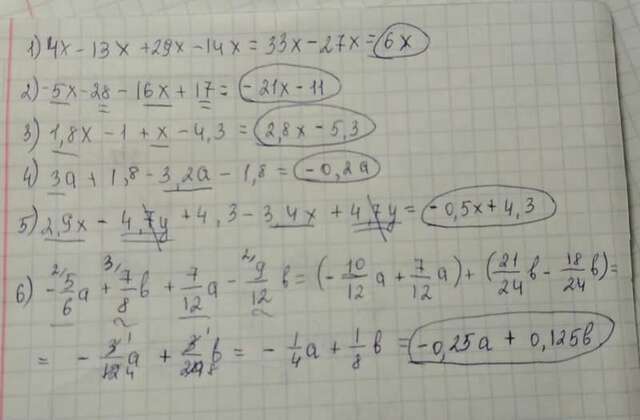 1) 4x - 13x + 29x - 14x = 33x - 27x = 6x
2) -5x - 28 - 16x + 17 = -21x - 11
3) 1,8x - 1 + x - 4,3 = 2,8x - 5,3
4) 3a + 1,8 - 3,2a - 1,8 = -0,2a
5) 2,9x - 4,7y + 4,3 - 3,4x + 4,7y = -0,5x + 4,3
6) -2/ 5/6 a + 3/ 7/8 b + 7/12 a - 2/ 9/12 b = (-10/12 a + 7/12 a) + (21/24 b - 18/24 b) =
= -3 1/12 4 a + 3 1/24 8 b = -1/4 a + 1/8 b = -0,25a + 0,125b